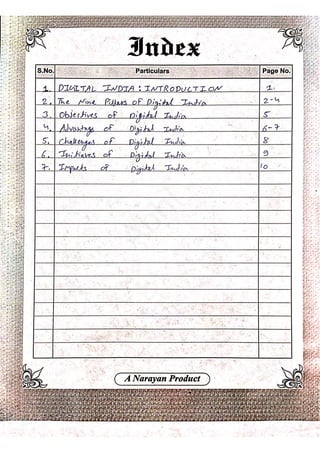 Index
S.No. Particulars Page No.
1. DIGITAL INDIA : INTRODUCTION 1.
2. The Nine Pillars of Digital India 2-4
3. Objectives of Digital India 5
4. Advantage of Digital India 6-7
5. Challenges of Digital India 8
6. Initiaves of Digital India 9
7. Impacts of Digital India 10
A Narayan Product